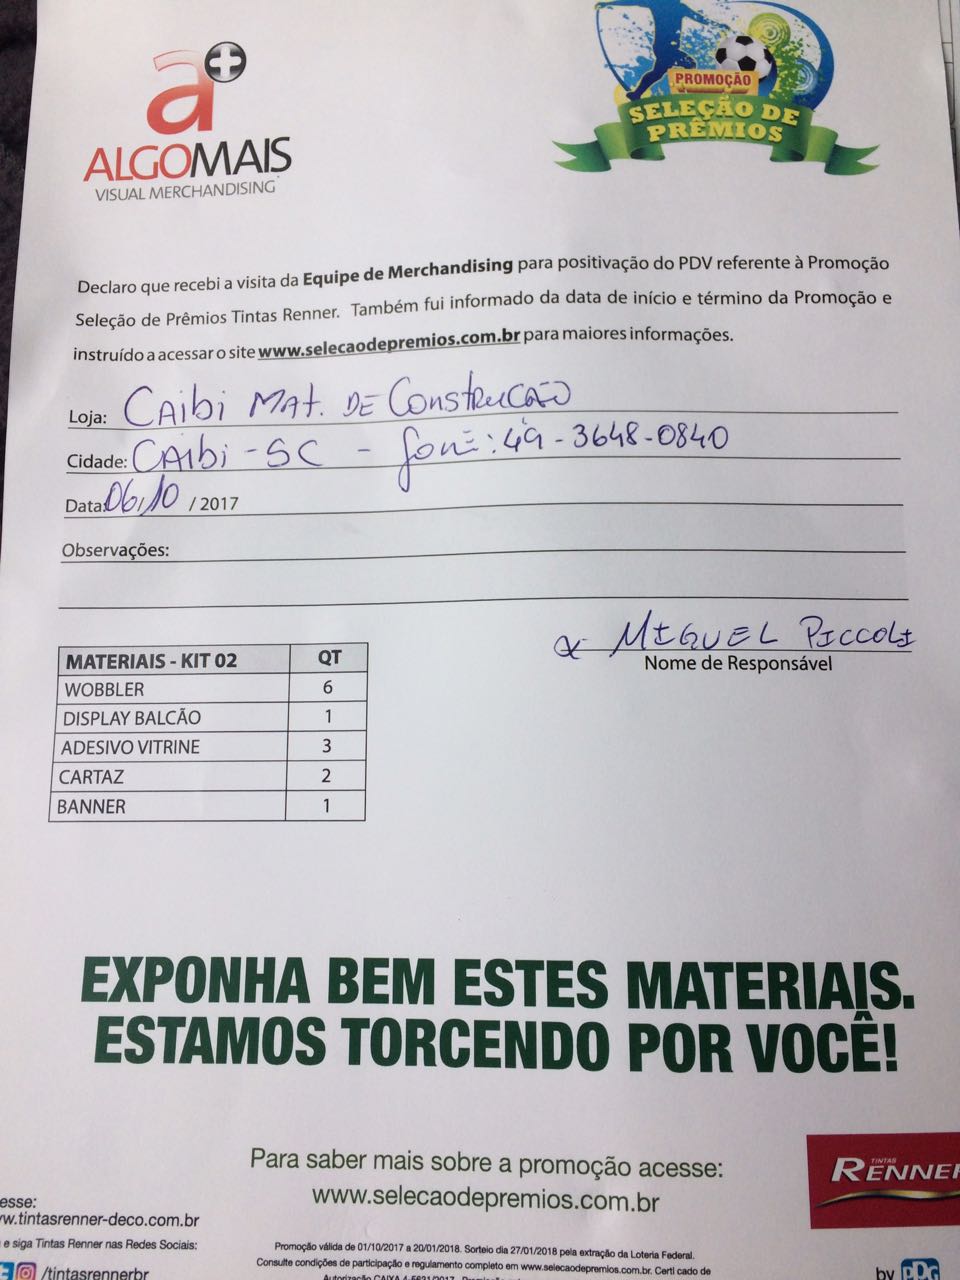 a+
ALGOMAIS
VISUAL MERCHANDISING
PROMOÇÃO
SELEÇÃO DE
PRÊMIOS
Declaro que recebi a visita da Equipe de Merchandising para positivação do PDV referente à Promoção
Seleção de Prêmios Tintas Renner. Também fui informado da data de início e término da Promoção e
instruído a acessar o site www.selecaodepremios.com.br para maiores informações.
Loja: CAibi MAT. DE CONSTRUÇÃO
Cidade: CAIBI-SC - fone: 49-3648-0840
Data: 06/10 / 2017
Observações:
x MIGUEL PICCOLI
Nome de Responsável
MATERIAIS - KIT 02 QT
WOBBLER 6
DISPLAY BALCÃO 1
ADESIVO VITRINE 3
CARTAZ 2
BANNER 1
EXPONHA BEM ESTES MATERIAIS.
ESTAMOS TORCENDO POR VOCÊ!
Para saber mais sobre a promoção acesse:
www.selecaodepremios.com.br
TINTAS
RENNER
esse:
w.tintasrenner-deco.com.br
e siga Tintas Renner nas Redes Sociais:
/tintasrennerbr
Promoção válida de 01/10/2017 a 20/01/2018. Sorteio dia 27/01/2018 pela extração da Loteria Federal.
Consulte condições de participação e regulamento completo em www.selecaodepremios.com.br. Certi cado de
Autorização CAIXA 4-5631/2017
by PPG